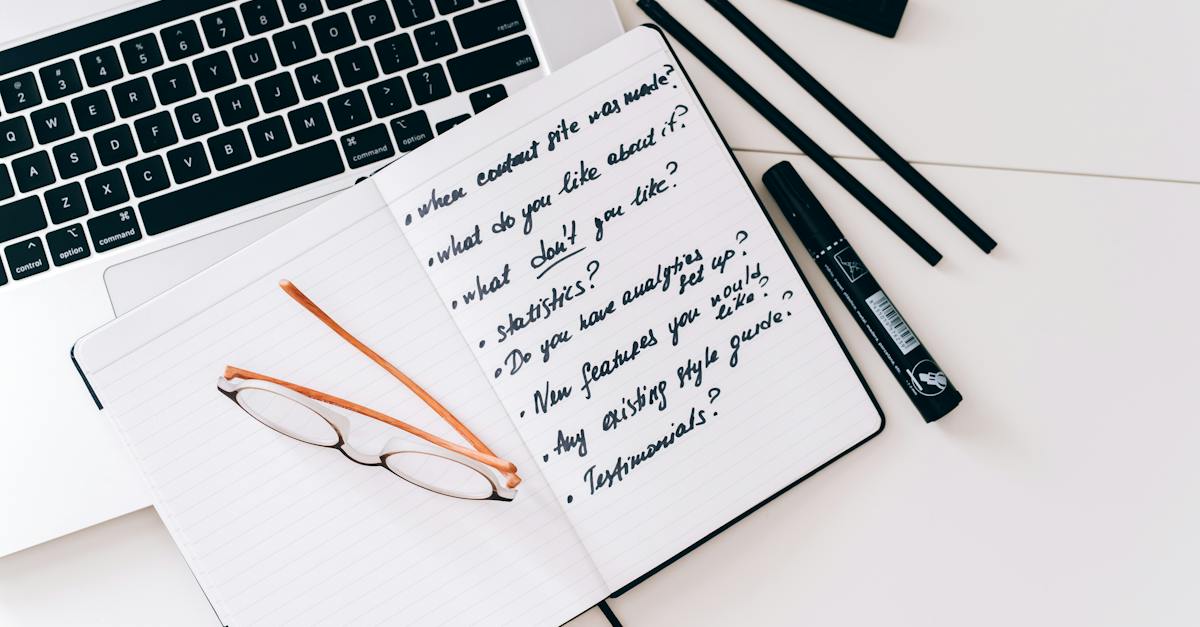 • when content site was made?
• what do you like about it?
• what don't you like?
• statistics?
• Do you have analytics
set up?
• New features you would
like?
• Any existing style guide?
• Testimonials?
return
shift
command
option
control
option
command
2 3 4 5 6 7 8 9
Q W E R T Y U I O P
A S D F G H J K L
Z X C V B N M